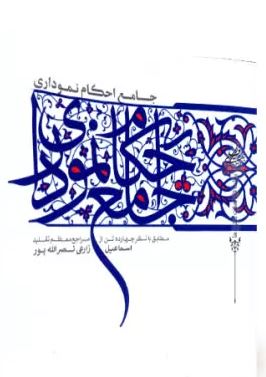 جامع احکام نموداری
جامع احکام نموداری
مطابق با نظر چهارده تن از مراجع معظم تقلید
اسماعیل زارعی نصرالله پور